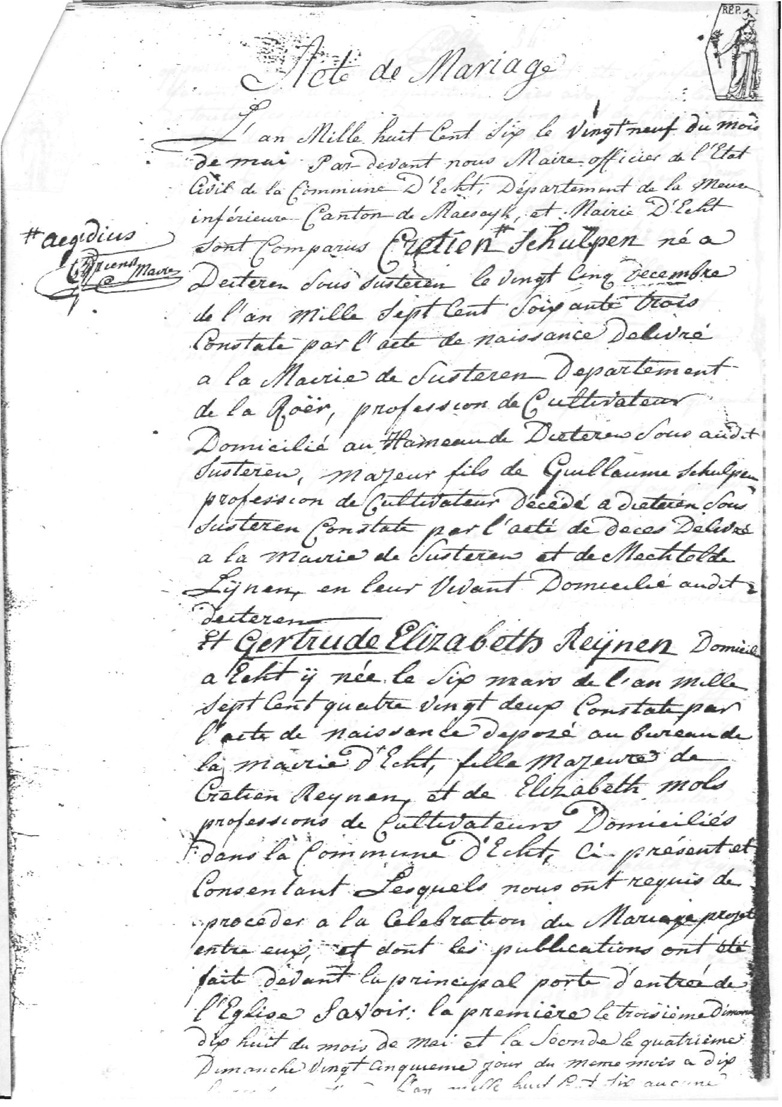 REP.
Acte de Mariage
L'an Mille huit Cent Six le Vingt neuf du mois
de mai Par devant nous Maire officier de l'Etat
Civil de la Commune D'Echt, Département de la Meuse
inférieure Canton de Maeseyk, et Mairie D'Echt
# aegidius
Maire
Sont Comparus Cretien # Schulpen né a
Deiteren Sous Susteren le Vingt Cinq Decembre
de l'an Mille Sept Cent Soixante trois
Constate par l'acte de naissance Delivré
a la Mairie de Susteren Departement
de la Roër, profession de Cultivateur
Domicilié au Hameau de Dieteren Sous audit
Susteren, majeur fils de Guillaume Schulpen
profession de Cultivateur Décédé a dieteren Sous
Susteren Constate par l'acte de deces Delivré
a la Mairie de Susteren et de Mechtolde
Lijnen, en leur Vivant Domicilié audit
deiteren
Et Gertrude Elizabeth Reijnen Domicil
a Echt ij née le Six mars de l'an mille
Sept Cent quatre Vingt deux Constate par
l'acte de naissance deposé au bureau de
la mairie d'Echt, fille Majeure de
Cretien Reynen, et de Elizabeth Mols
professions de Cultivateurs Domiciliés
dans la Commune D'Echt, Ci présent et
Consentant Lesquels nous ont requis de
proceder a la Celebration du Mariage projet
entre eux, et dont les publications ont été
fait devant la principal porte d'entrée de
l'Eglise Savoir: la première le troisième Dimanc
dix huit du mois de Mai et la Seconde le quatrieme
Dimanche Vingt Cinquieme jour du meme mois a dix
l'an mille huit Cent Six aucune